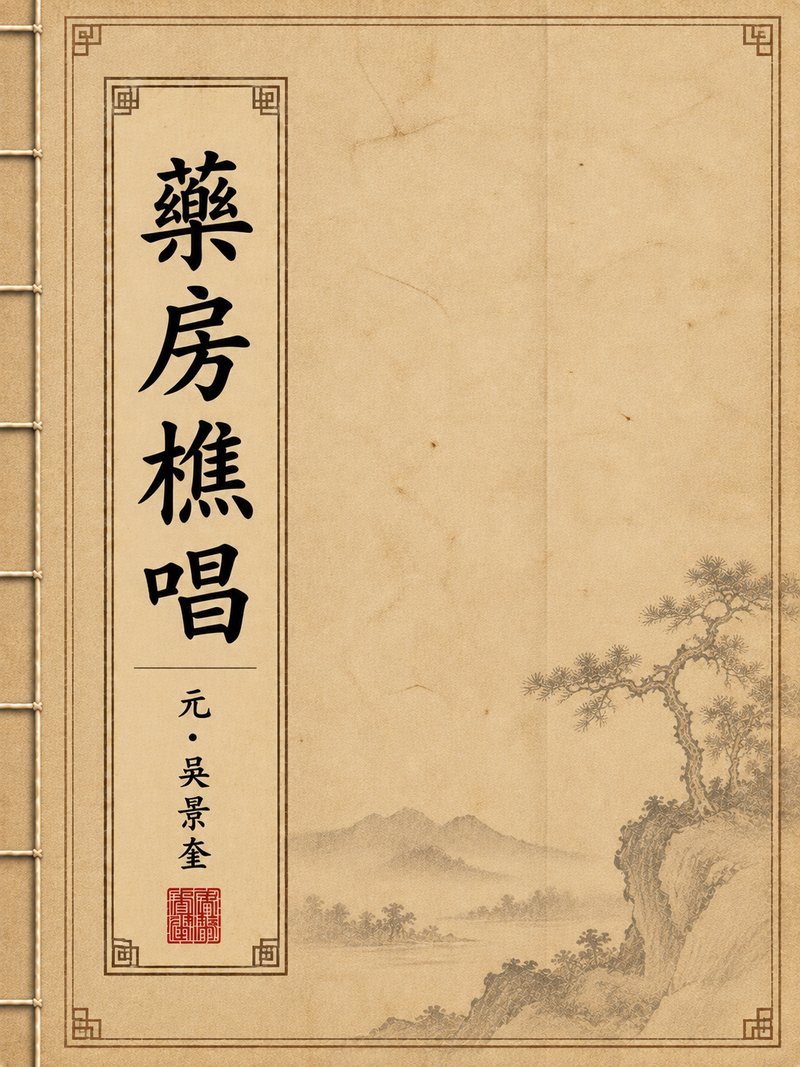 藥房樵唱
元·吳景奎